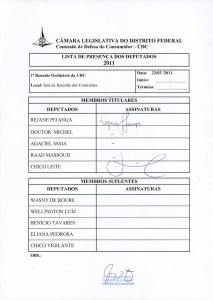 CÂMARA LEGISLATIVA DO DISTRITO FEDERAL
Comissão de Defesa do Consumidor – CDC
LISTA DE PRESENÇA DOS DEPUTADOS
2011
1ª Reunião Ordinária da CDC
Local: Sala de Reunião das Comissões
Data: 22/03 /2011
Início:
Término:
MEMBROS TITULARES
DEPUTADOS ASSINATURAS
REJANE PITANGA
DOUTOR MICHEL
AGACIEL MAIA
RAAD MASSOUH
CHICO LEITE
MEMBROS SUPLENTES
DEPUTADOS ASSINATURAS
WASNY DE ROURE
WELLINGTON LUIZ
BENÍCIO TAVARES
ELIANA PEDROSA
CHICO VIGILANTE
OBS.: